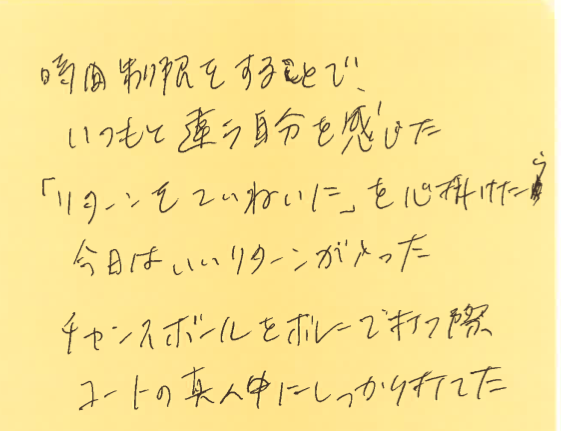 時間制限をすることで、
いつもと違う自分を感じた
「リターンをていねいに」を心掛けたら
今日はいいリターンが入った
チャンスボールをボレーで打つ際
コートの真ん中にしっかり打てた